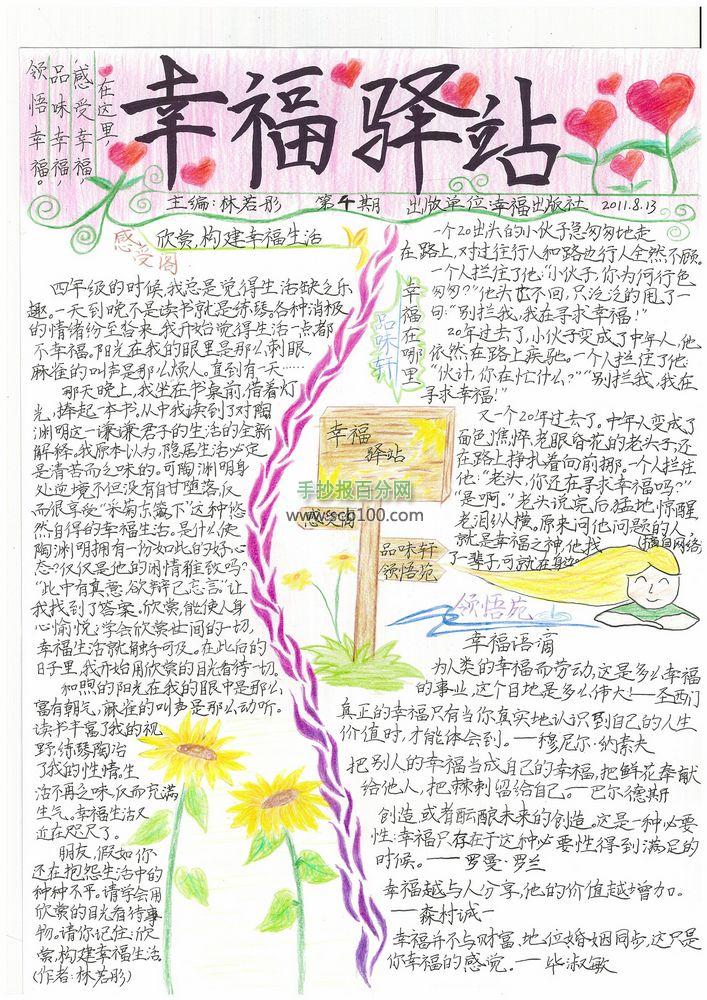 在这里，
感受幸福，
品味幸福，
领悟幸福。
幸福驿站
主编:林若彤 第4期 出版单位:幸福出版社 2011.8.13
感受阁
欣赏,构建幸福生活
四年级的时候,我总是觉得生活缺乏乐
趣。一天到晚不是读书就是练琴,各种消极
的情绪纷至沓来,我开始觉得生活一点都
不幸福。阳光在我的眼里是那么刺眼,
麻雀的叫声是那么烦人。直到有一天……
那天晚上,我坐在书桌前,借着灯
光,捧起一本书,从中我读到了对陶
渊明这一谦谦君子的生活的全新
解释。我原本认为,隐居生活必定
是清苦而乏味的。可陶渊明身
处逆境不但没有自甘堕落,反
而很享受“采菊东篱下”这种悠
然自得的幸福生活。是什么使
陶渊明拥有一份如此的好心
态?仅仅是他的闲情雅致吗?
“此中有真意,欲辩已忘言。”让
我找到了答案。欣赏,能使人身
心愉悦;学会欣赏世间的一切,
幸福生活就触手可及。在此后的
日子里,我开始用欣赏的目光看待一切。
和煦的阳光在我的眼中是那么
富有朝气,麻雀的叫声是那么动听。
读书丰富了我的视
野,练琴陶冶
了我的性情,生
活不再乏味,仅而充满
生气。幸福生活又
近在咫尺了。
朋友,假如你
还在抱怨生活中的
种种不平。请学会用
欣赏的目光看待事
物。请你记住:欣
赏,构建幸福生活
(作者:林若彤)
品味轩
幸福在哪里
一个20出头的小伙子急匆匆地走
在路上,对过往行人和路也行人全然不顾。
一个人拦住了他:“小伙子,你为何行色
匆匆?”他头也不回,只泛泛的甩了一
句:“别拦我,我在寻求幸福!”
20年过去了,小伙子变成了中年人,他
依然在路上疾驰。一个人拦住了他:
“伙计,你在忙什么?”“别拦我,我在
寻求幸福!”
又一个20年过去了。中年人变成了
面色憔悴,老眼昏花的老头子,还
在路上挣扎着向前挪。一个人拦住
他:“老头,你还在寻求幸福吗?”
“是啊。”老头说完后猛地惊醒
老泪纵横。原来问他问题的人,
就是幸福之神,他找
了一辈子,可就在身边。
(摘自网络)
幸福
驿站
感受阁
品味轩
领悟苑
手抄报百分网
www.scb100.com
领悟苑
幸福语滴
为人类的幸福而劳动,这是多么幸福
的事业,这个目地是多么伟大!——圣西门
真正的幸福只有当你真实地认识到自己的人生
价值时,才能体会到。——穆尼尔·纳素夫
把别人的幸福当成自己的幸福,把鲜花奉献
给他人,把棘刺留给自己。——巴尔德斯
创造或者酝酿未来的创造。这是一种必要
性:幸福只存在于这种必要性得到满足的
时候。——罗曼·罗兰
幸福越与人分享,他的价值越增加。
——森村诚一
幸福并不与财富,地位婚姻同步,这只是
你幸福的感觉。——毕淑敏